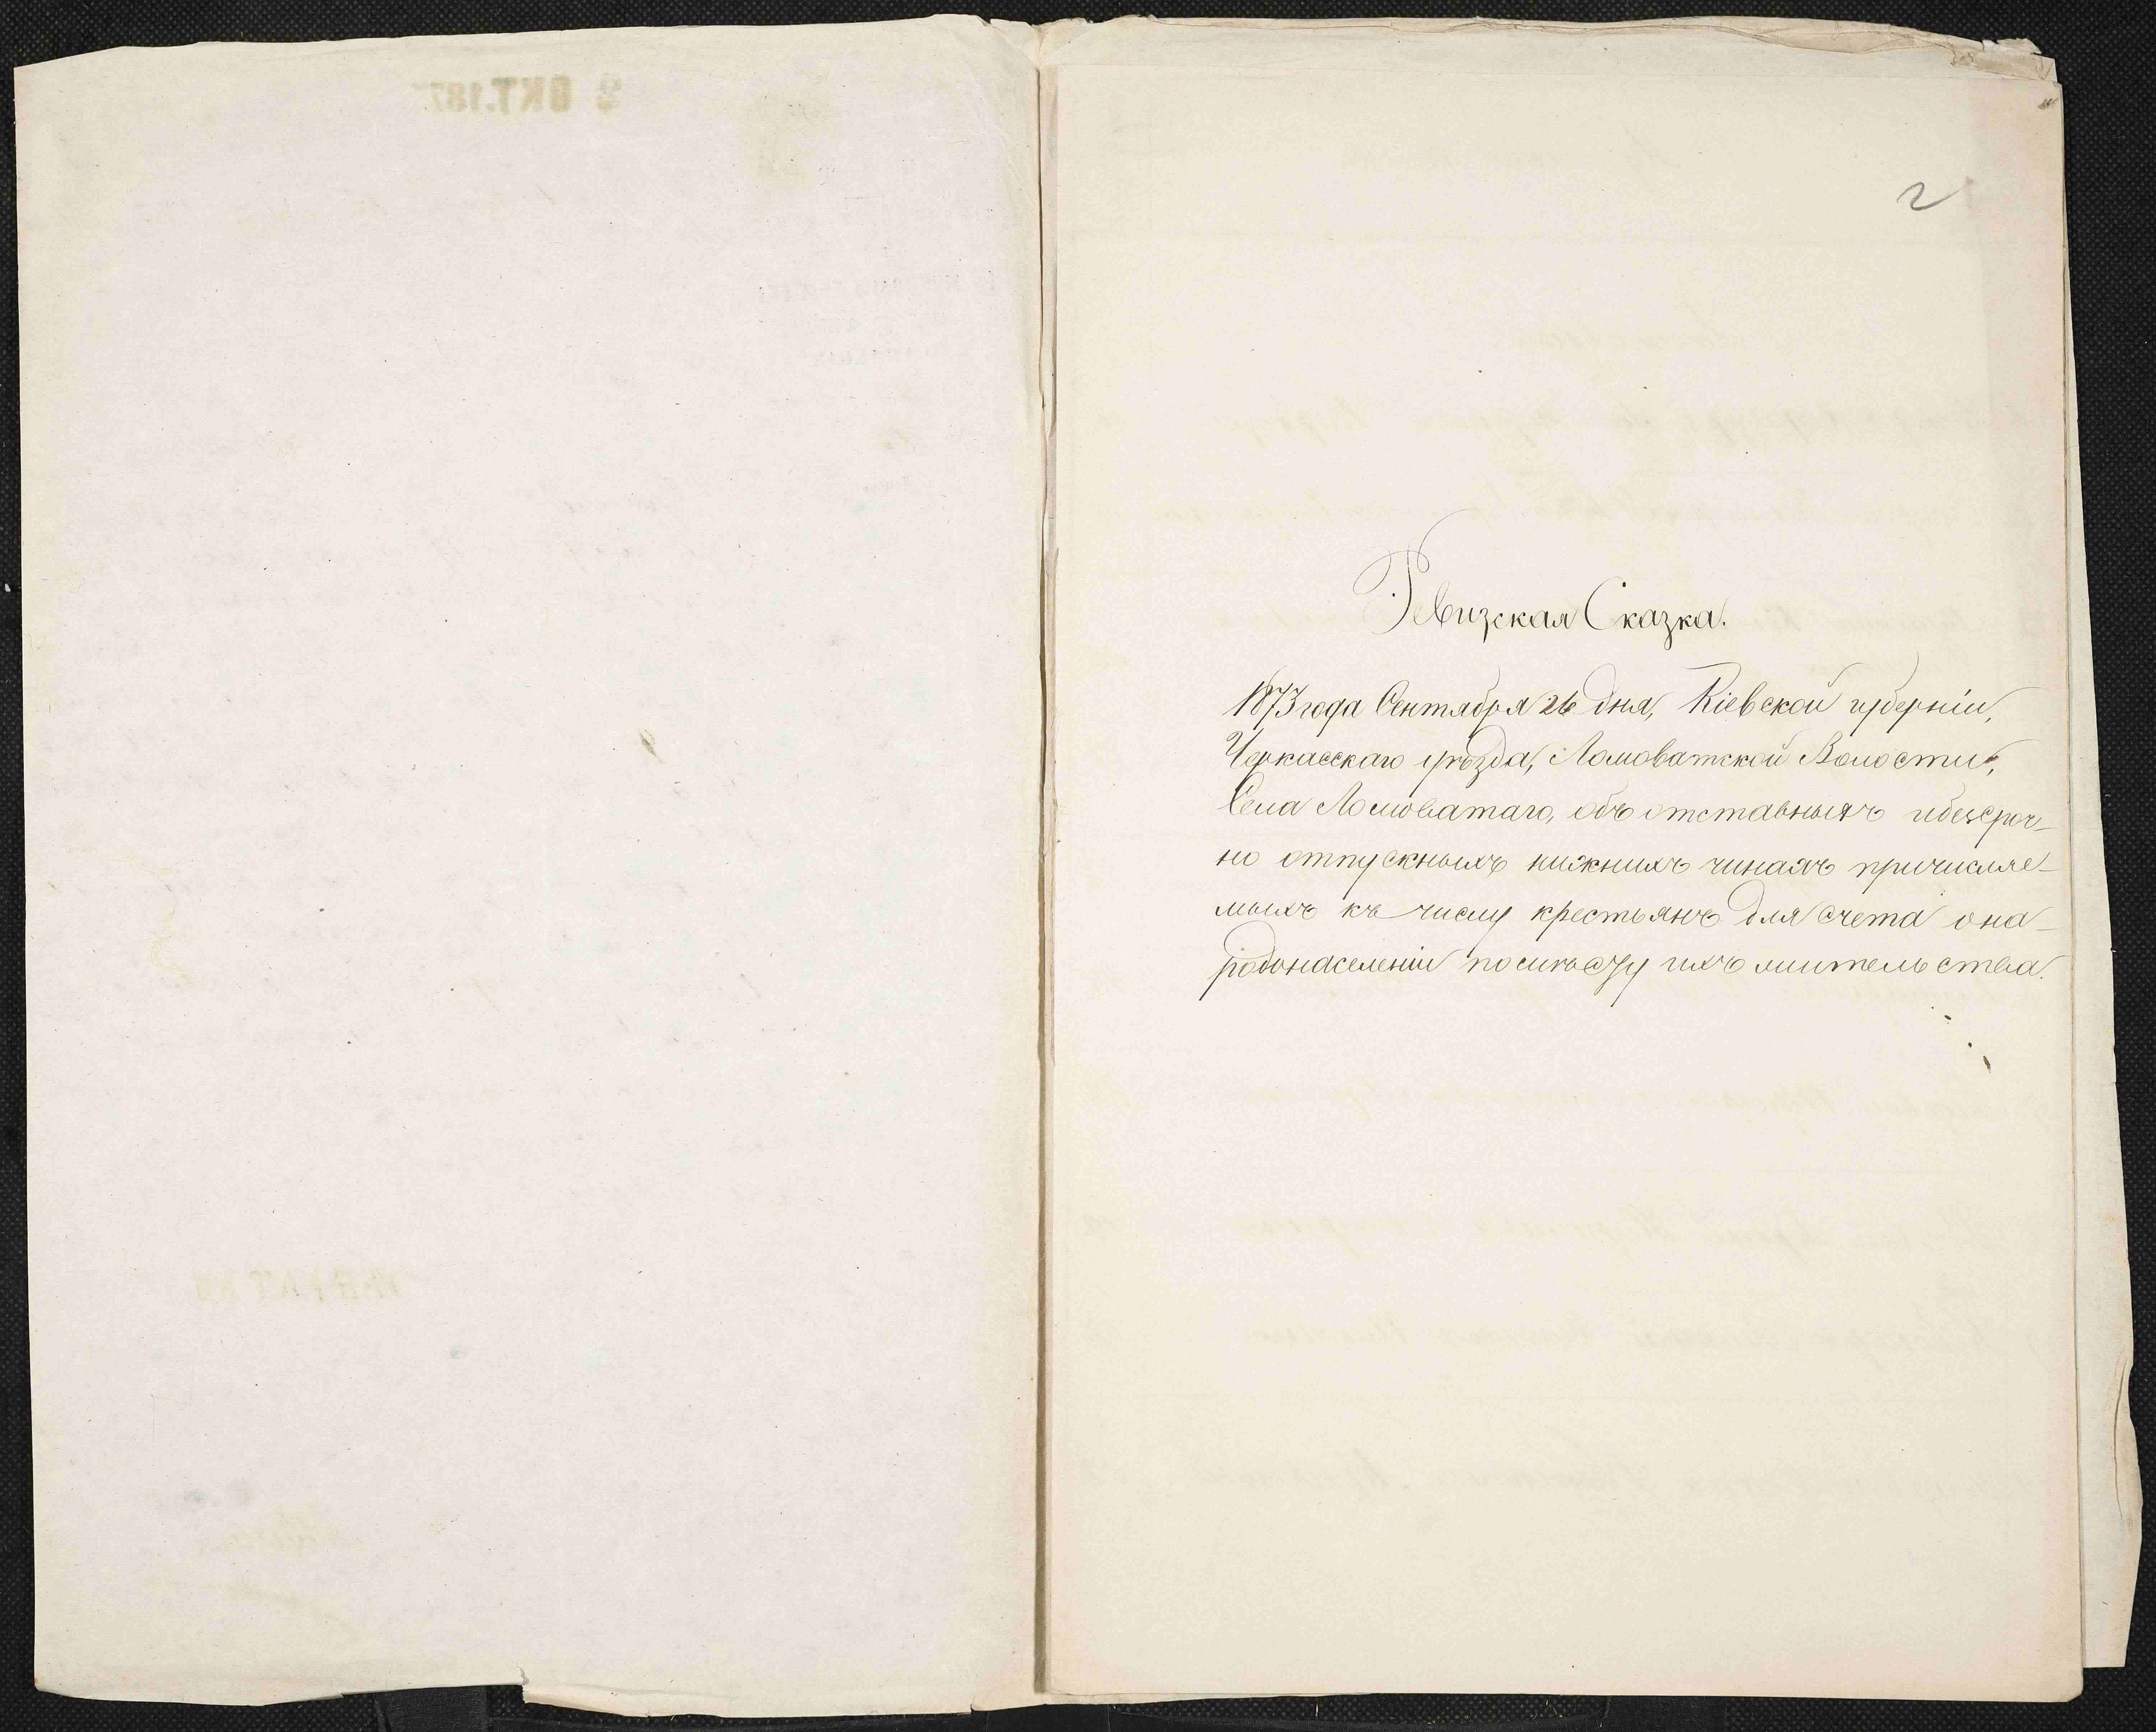 2
Ревизская Сказка.
1873 года Сентября 26 дня, Кіевской губерніи,
Черкасскаго уѣзда, Ломоватской Волости,
Села Ломоватаго, объ отставныхъ и безсроч-
но отпускныхъ нижнихъ чинахъ причисляе-
мыхъ къ числу крестьянъ для счета о на-
родонаселеніи по ихъ
2 ОКТ. 187